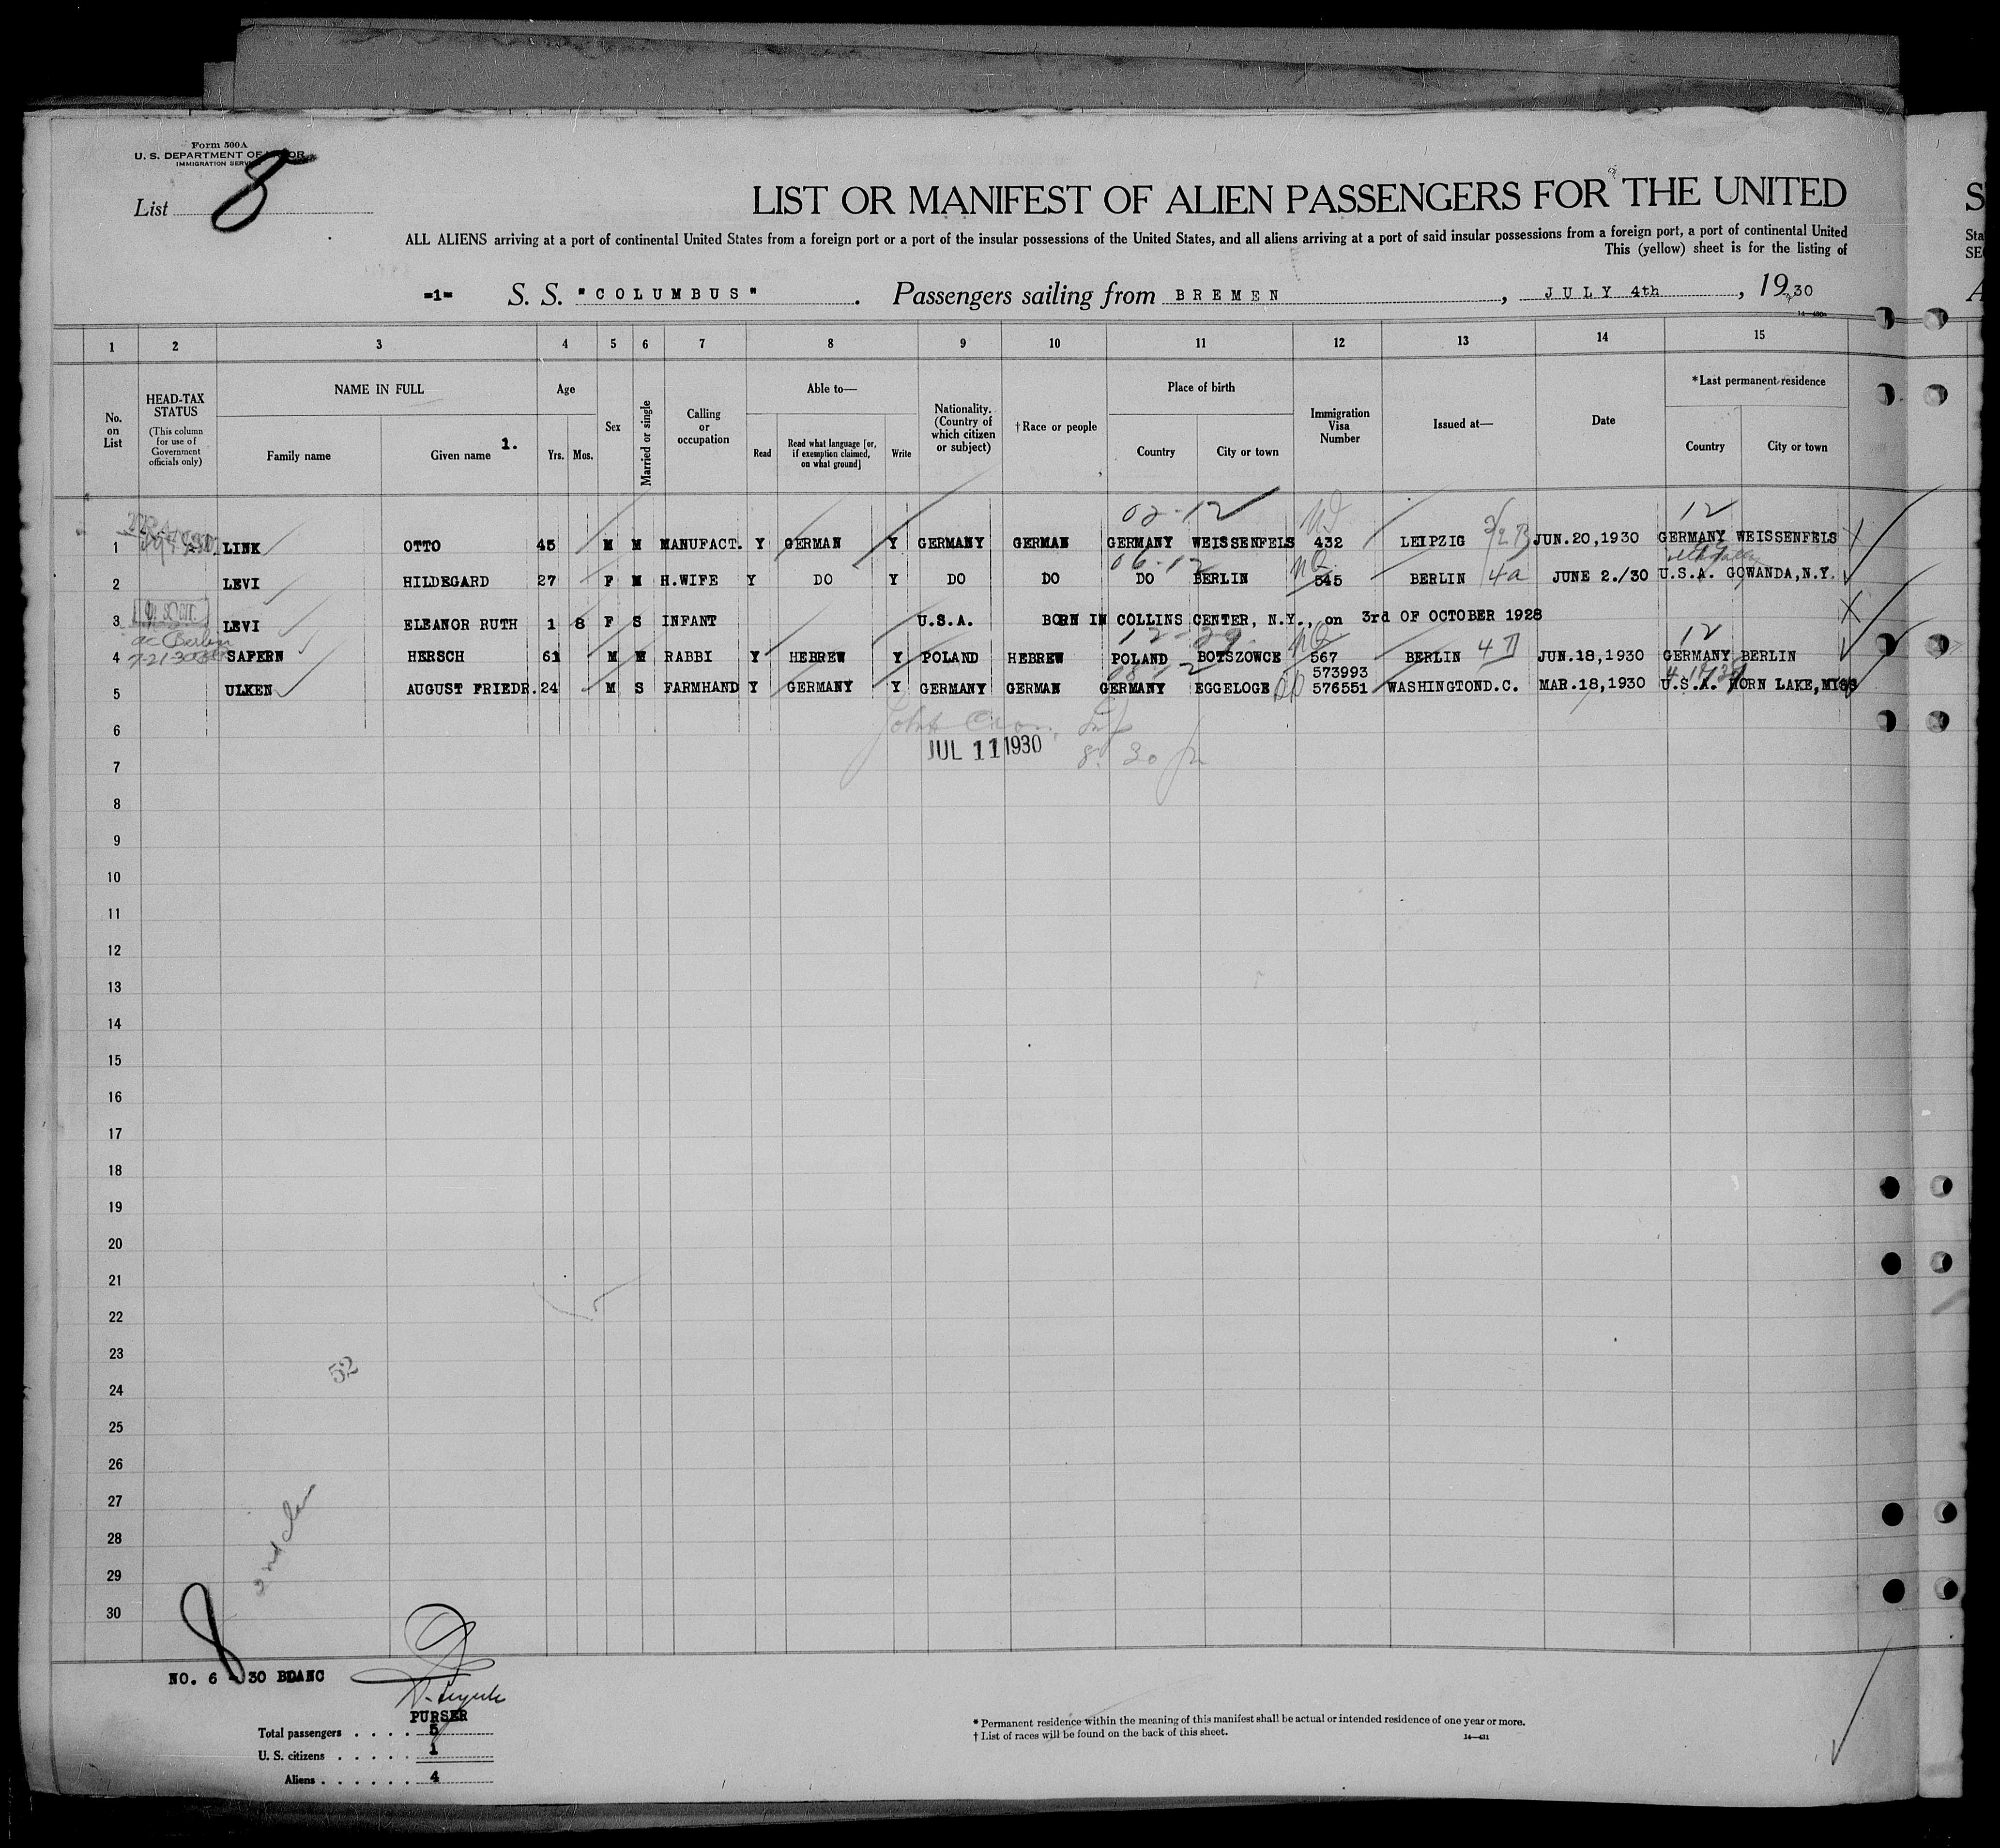 Form 500A
U. S. DEPARTMENT OF LABOR
IMMIGRATION SERVICE
List 8
LIST OR MANIFEST OF ALIEN PASSENGERS FOR THE UNITED
S
ALL ALIENS arriving at a port of continental United States from a foreign port or a port of the insular possessions of the United States, and all aliens arriving at a port of said insular possessions from a foreign port, a port of continental United
Sta
This (yellow) sheet is for the listing of
SE
-1- S. S. "COLUMBUS" . Passengers sailing from BREMEN , JULY 4th , 19 30
A
1 2 3 4 5 6 7 8 9 10 11 12 13 14 15
No. on List
HEAD-TAX STATUS
(This column for use of Government officials only)
NAME IN FULL
Family name
Given name 1.
Age
Yrs. Mos.
Sex
Married or single
Calling or occupation
Able to—
Read
Read what language [or, if exemption claimed, on what ground]
Write
Nationality. (Country of which citizen or subject)
† Race or people
Place of birth
Country
City or town
Immigration Visa Number
Issued at—
Date
* Last permanent residence
Country
City or town
02-12 12
1 LINK OTTO 45 M M MANUFACT. Y GERMAN Y GERMANY GERMAN GERMANY WEISSENFELS 432 LEIPZIG JUN.20,1930 GERMANY WEISSENFELS
06-12
2 LEVI HILDEGARD 27 F M H.WIFE Y DO Y DO DO DO BERLIN 545 BERLIN 4a JUNE 2./30 U.S.A. GOWANDA,N.Y.
3 LEVI ELEANOR RUTH 1 8 F S INFANT U.S.A. BORN IN COLLINS CENTER, N.Y., on 3rd OF OCTOBER 1928
12-29 12
4 SAFERN HERSCH 61 M M RABBI Y HEBREW Y POLAND HEBREW POLAND BOTSZOWCE 567 BERLIN JUN.18,1930 GERMANY BERLIN
573993
5 ULKEN AUGUST FRIEDR. 24 M S FARMHAND Y GERMANY Y GERMANY GERMAN GERMANY EGGELOGE 576551 WASHINGTOND.C. MAR.18,1930 U.S.A. HORN LAKE,MISS
6
JUL 11 1930
8. 30
7
8
9
10
11
12
13
14
15
16
17
18
19
20
21
22
23
52
24
25
26
27
28
29
2nd
30
8
NO. 6 - 30 BDANC
PURSER
Total passengers . . . . 5
U. S. citizens . . . . . 1
Aliens . . . . . . 4
* Permanent residence within the meaning of this manifest shall be actual or intended residence of one year or more.
† List of races will be found on the back of this sheet.
14—431